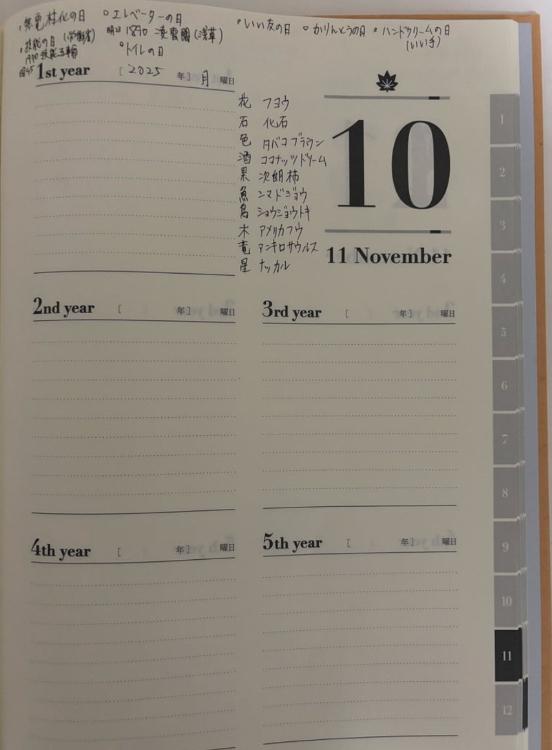 ・無電柱化の日 ○エレベーターの日 ・いい友の日 ○かりんとうの日 ○ハンドクリームの日
・技能の日 明治 1890 凌雲閣(浅草) (いい手)
1970 技能五輪 ○トイレの日
1st year [2025年] 月曜日
花 フヨウ
石 化石
色 タバコブラウン
酒 ココナッツドリーム
果 次郎柿
魚 シマドジョウ
鳥 ショウジョウトキ
木 アメリカフウ
竜 アンキロサウルス
星 ナッカル
10
11 November
2nd year [ 年] 曜日
3rd year [ 年] 曜日
4th year [ 年] 曜日
5th year [ 年] 曜日
1
2
3
4
5
6
7
8
9
10
11
12